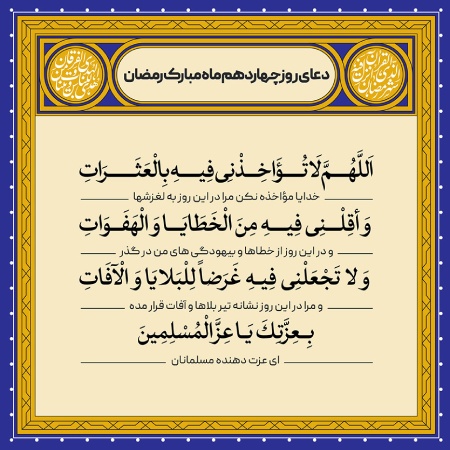 دعای روز چهاردهم ماه مبارک رمضان
اَللَّهُمَّ لَا تُؤَاخِذْنِی فِیهِ بِالْعَثَرَاتِ
خدایا مؤاخذه نکن مرا در این روز به لغزشها
وَ أَقِلْنِی فِیهِ مِنَ الْخَطَایَا وَ الْهَفَوَاتِ
و در این روز از خطاها و بیهودگی های من در گذر
وَ لا تَجْعَلْنِی فِیهِ غَرَضاً لِلْبَلایَا وَ الْآفَاتِ
و مرا در این روز نشانه تیر بلاها و آفات قرار مده
بِعِزَّتِكَ یَا عِزَّ الْمُسْلِمِینَ
ای عزت دهنده مسلمانان